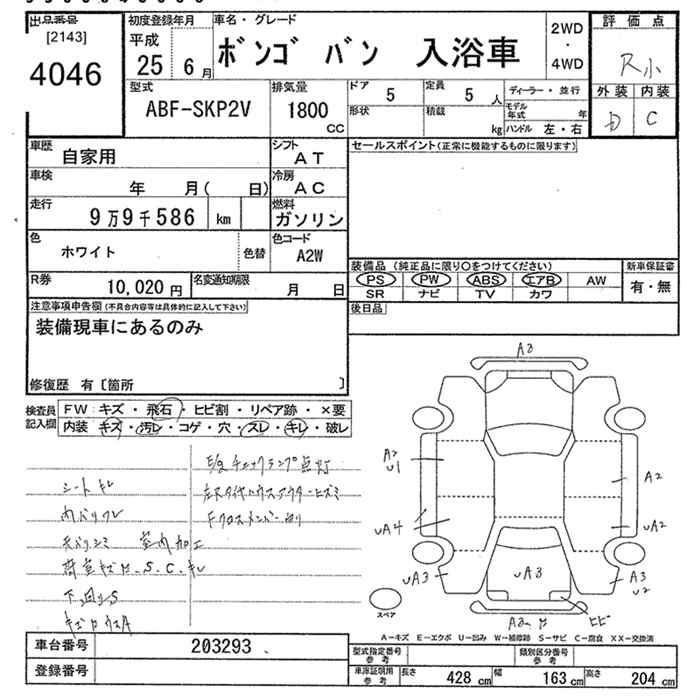 出品番号
[2143]
4046
初度登録年月
平成
25 6月
車名・グレード
ボンゴ バン 入浴車
2WD
・
4WD
評価点
R小
外装 内装
D C
型式
ABF-SKP2V
排気量
1800
CC
ドア
5
定員
5 人
形状
積載
kg
ディーラー・並行
モデル年式 年
ハンドル 左・右
車歴
自家用
シフト
AT
車検
年 月( 日)
冷房
AC
走行
9万9千586 km
燃料
ガソリン
色
ホワイト
色替
色コード
A2W
R券
10,020円
名変通知期限
月 日
セールスポイント(正常に機能するものに限ります)
装備品(純正品に限り○をつけてください)
PS PW ABS エアB AW
SR ナビ TV カワ
新車保証書
有・無
後日品
注意事項申告欄(不具合内容等は具体的に記入して下さい)
装備現車にあるのみ
修復歴 有〔箇所 〕
検査員記入欄
FW: キズ・飛石・ヒビ割・リペア跡・×要
内装 キズ・汚レ・コゲ・穴・スレ・キレ・破レ
シートキレ
内バリワレ
天バリシミ 室内加工
荷室キズ凹.S.C.キレ
下回りS
チェックランプ点灯
左Rタイヤハウスアウターヒズミ
Fクロスメンバー凹リ
A3
A2
U1
UA4
UA3
A2
UA2
A3
U2
UA3
ヒビ
スペア
A―キズ E―エクボ U―凹み W―補修跡 S―サビ C―腐食 XX―交換済
車台番号
203293
登録番号
型式指定番号
参考
類別区分番号
参考
車庫証明用
参考
長さ 428 cm 幅 163 cm 高さ 204 cm